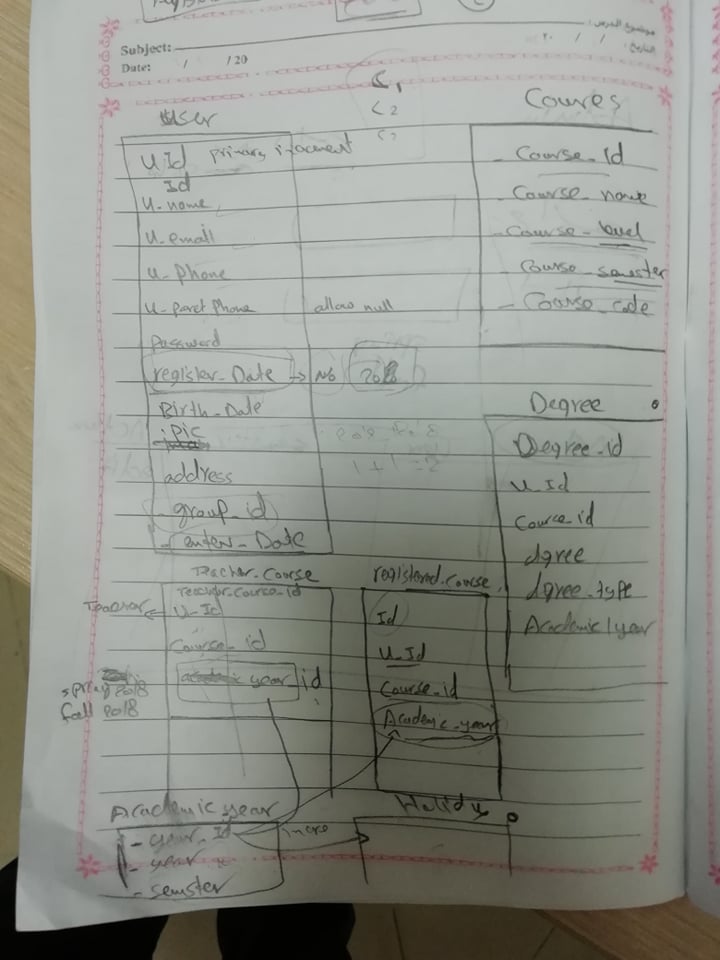 Subject:
موضوع الدرس:
Date: / /20
التاريخ: / / ٢٠
User
C1
C2
Coures
U_Id primary
Id
U_name
U_email
U_phone
U_paret phone allow null
Password
register_Date → No
Birth_Date
pic
address
group_id
enter_Date
- Course_Id
Course_name
- Course_level
Course_semster
- Course_code
Degree
Degree_id
U_Id
Course_id
dgree
dgree_type
Academic year
Teacher_Course
Teacher_course_id
Teacher ← U_Id
Course_id
year id
2018
fall 2018
registered_course
Id
U_Id
Course_id
Academic_year
Academic year
- year_Id
- year
- semster
incre
Holidy